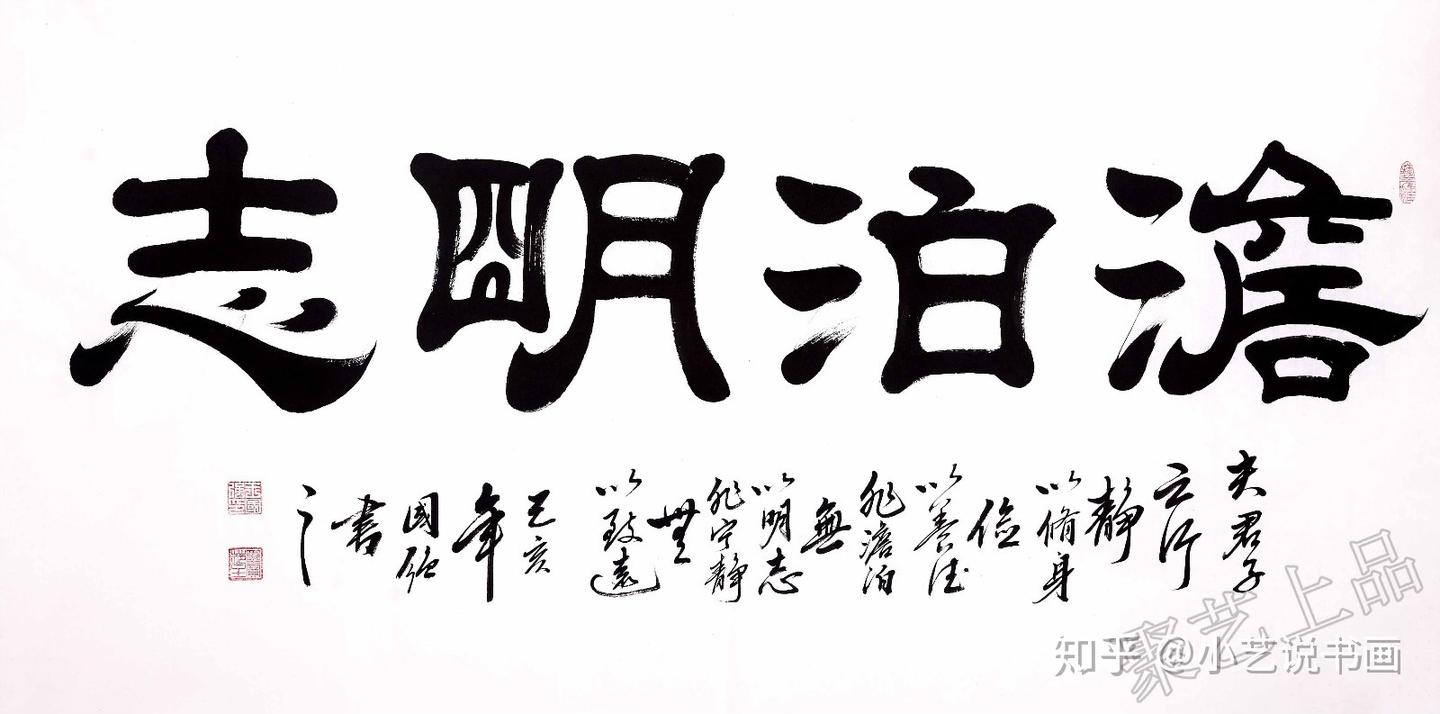 澹泊明志
夫君子
之行
静
以脩身
俭
以养德
非澹泊
無
以明志
非宁静
無
以致遠
己亥
年
國強
書
之
聚艺上品
知乎 @小艺说书画